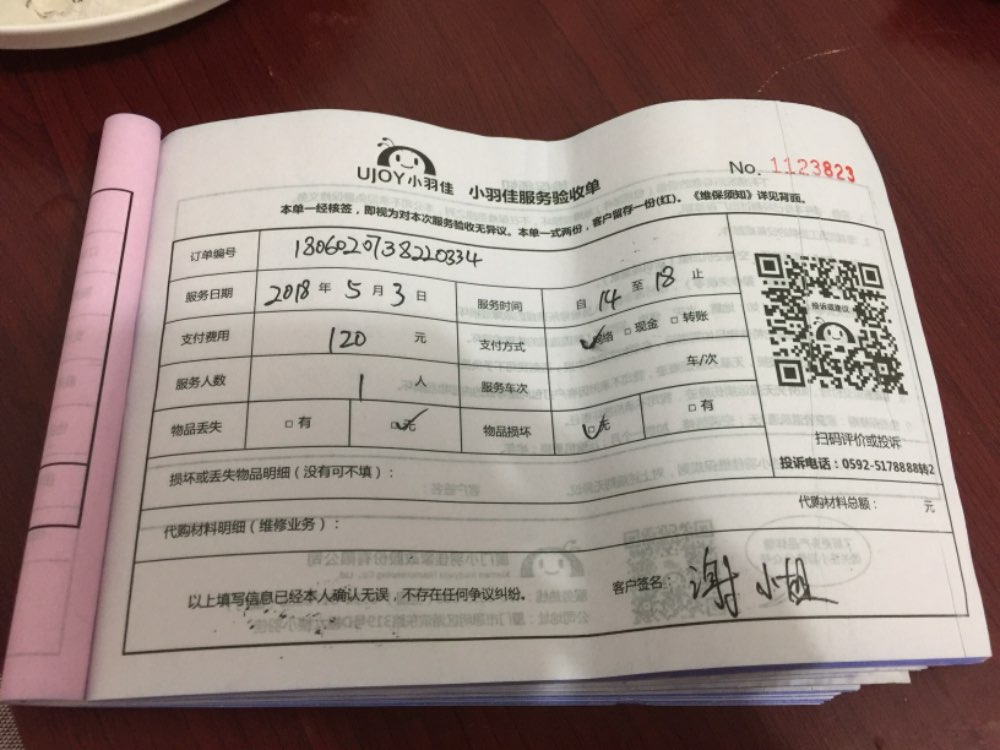 UJOY小羽佳 小羽佳服务验收单 No. 1123823
本单一经核签，即视为对本次服务验收无异议。本单一式两份，客户留存一份(红)。《维保须知》详见背面。
订单编号 1806020738220334
服务日期 2018 年 5 月 3 日 服务时间 自 14 至 18 止
支付费用 120 元 支付方式 网络 □现金 □转账
服务人数 1 人 服务车次 车/次
物品丢失 □有 □无 物品损坏 □无 □有
投诉或建议
扫码评价或投诉
投诉电话：0592-5178888转2
损坏或丢失物品明细（没有可不填）：
代购材料明细（维修业务）： 代购材料总额： 元
以上填写信息已经本人确认无误，不存在任何争议纠纷。 客户签名： 谢小姐